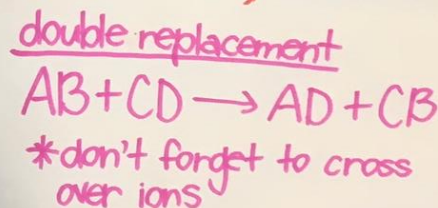 double replacement
AB+CD → AD+CB
*don't forget to cross
over ions